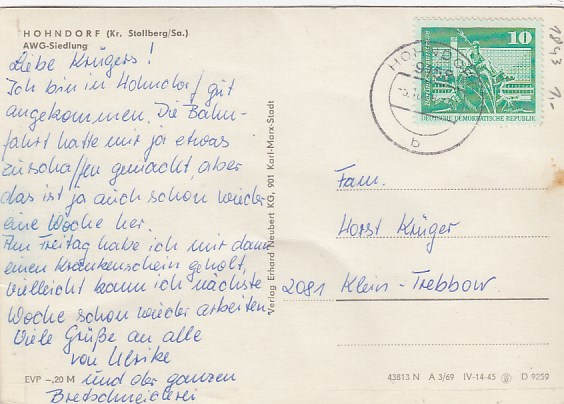 HOHNDORF (Kr. Stollberg/Sa.)
AWG-Siedlung
Liebe Krügers!
Ich bin in Hohndorf gut
angekommen. Die Bahn-
fahrt hatte mir ja etwas
zuschaffen gemacht, aber
das ist ja auch schon wieder
eine Woche her.
Am Freitag habe ich mir dann
einen Krankenschein geholt,
vielleicht kann ich nächste
Woche schon wieder arbeiten.
Viele Grüße an alle
von Ulrike
und der ganzen
Bretschneiderei
EVP -,20 M
Verlag Erhard Neubert KG, 901 Karl-Marx-Stadt
10
DEUTSCHE DEMOKRATISCHE REPUBLIK
HOHNDORF
b
1843
1,-
Fam.
Horst Krüger
2081 Klein-Trebbow
43813 N A 3/69 IV-14-45 D 9259